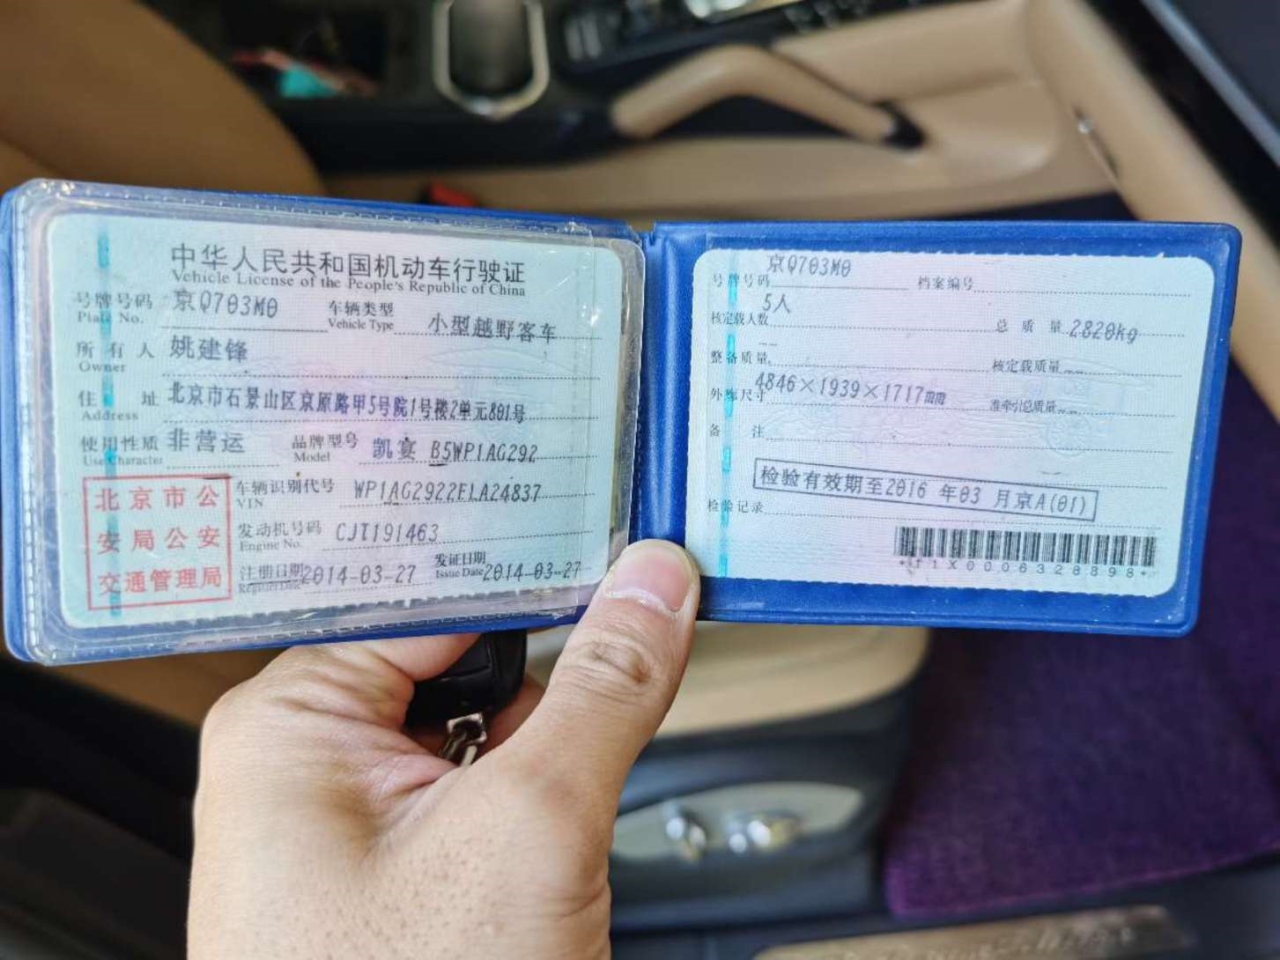 中华人民共和国机动车行驶证
Vehicle License of the People's Republic of China
号牌号码 京Q703M0 车辆类型 小型越野客车
Plate No. Vehicle Type
所有人 姚建锋
Owner
住址 北京市石景山区京原路甲5号院1号楼2单元801号
Address
使用性质 非营运 品牌型号 凯宴 B5WP1AG292
Use Character Model
北京市公
安局公安
交通管理局
车辆识别代号 WP1AG2922ELA24837
VIN
发动机号码 CJT191463
Engine No.
注册日期 2014-03-27 发证日期 2014-03-27
Register Date Issue Date
号牌号码 京Q703M0 档案编号
核定载人数 5人 总质量 2820kg
整备质量 -- 核定载质量 --
外廓尺寸 4846×1939×1717mm 准牵引总质量 --
备注
检验有效期至2016 年03 月京A(01)
检验记录
*11X0006328898*